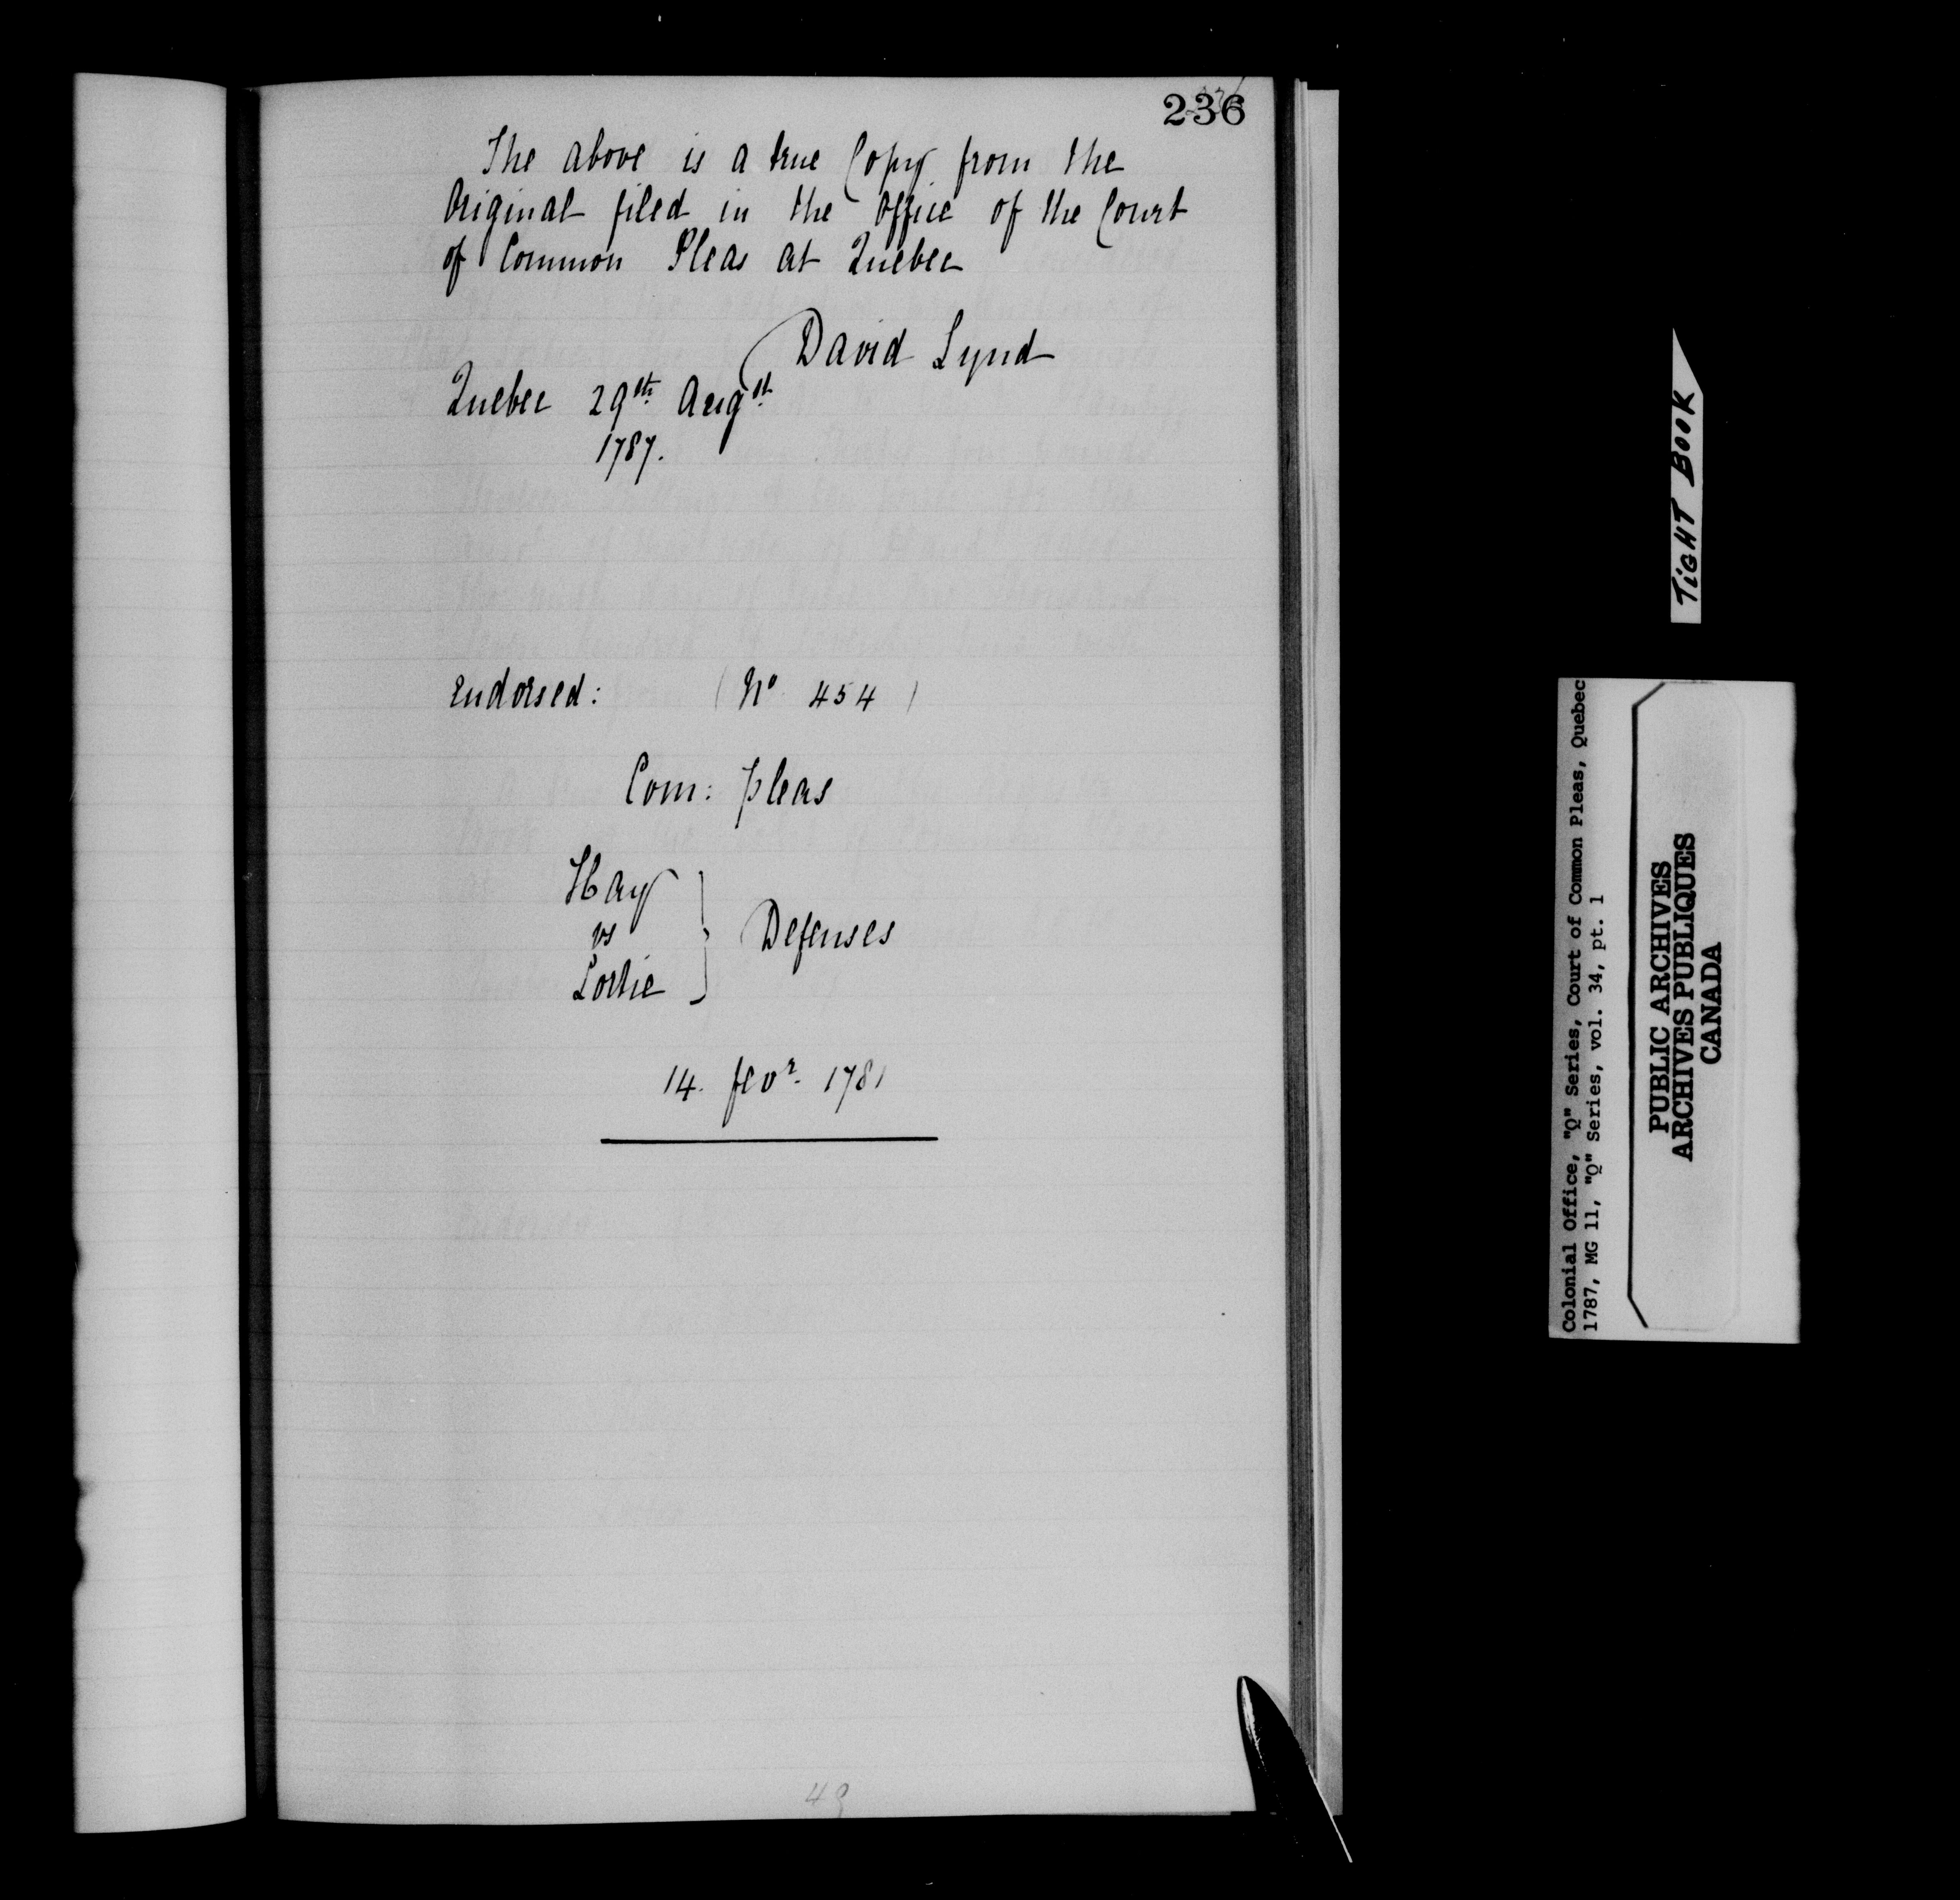 236
The above is a true Copy from the
Original filed in the Office of the Court
of Common Pleas at Quebec
David Lynd
Quebec 29th Augst
1787.
Endorsed: (No 454)
Com: pleas
Hay
vs
Lortie
} Defenses
14. fevr. 1781
49
TiGHT BOOK
Colonial Office, "Q" Series, Court of Common Pleas, Quebec
1787, MG 11, "Q" Series, vol. 34, pt. 1
PUBLIC ARCHIVES
ARCHIVES PUBLIQUES
CANADA